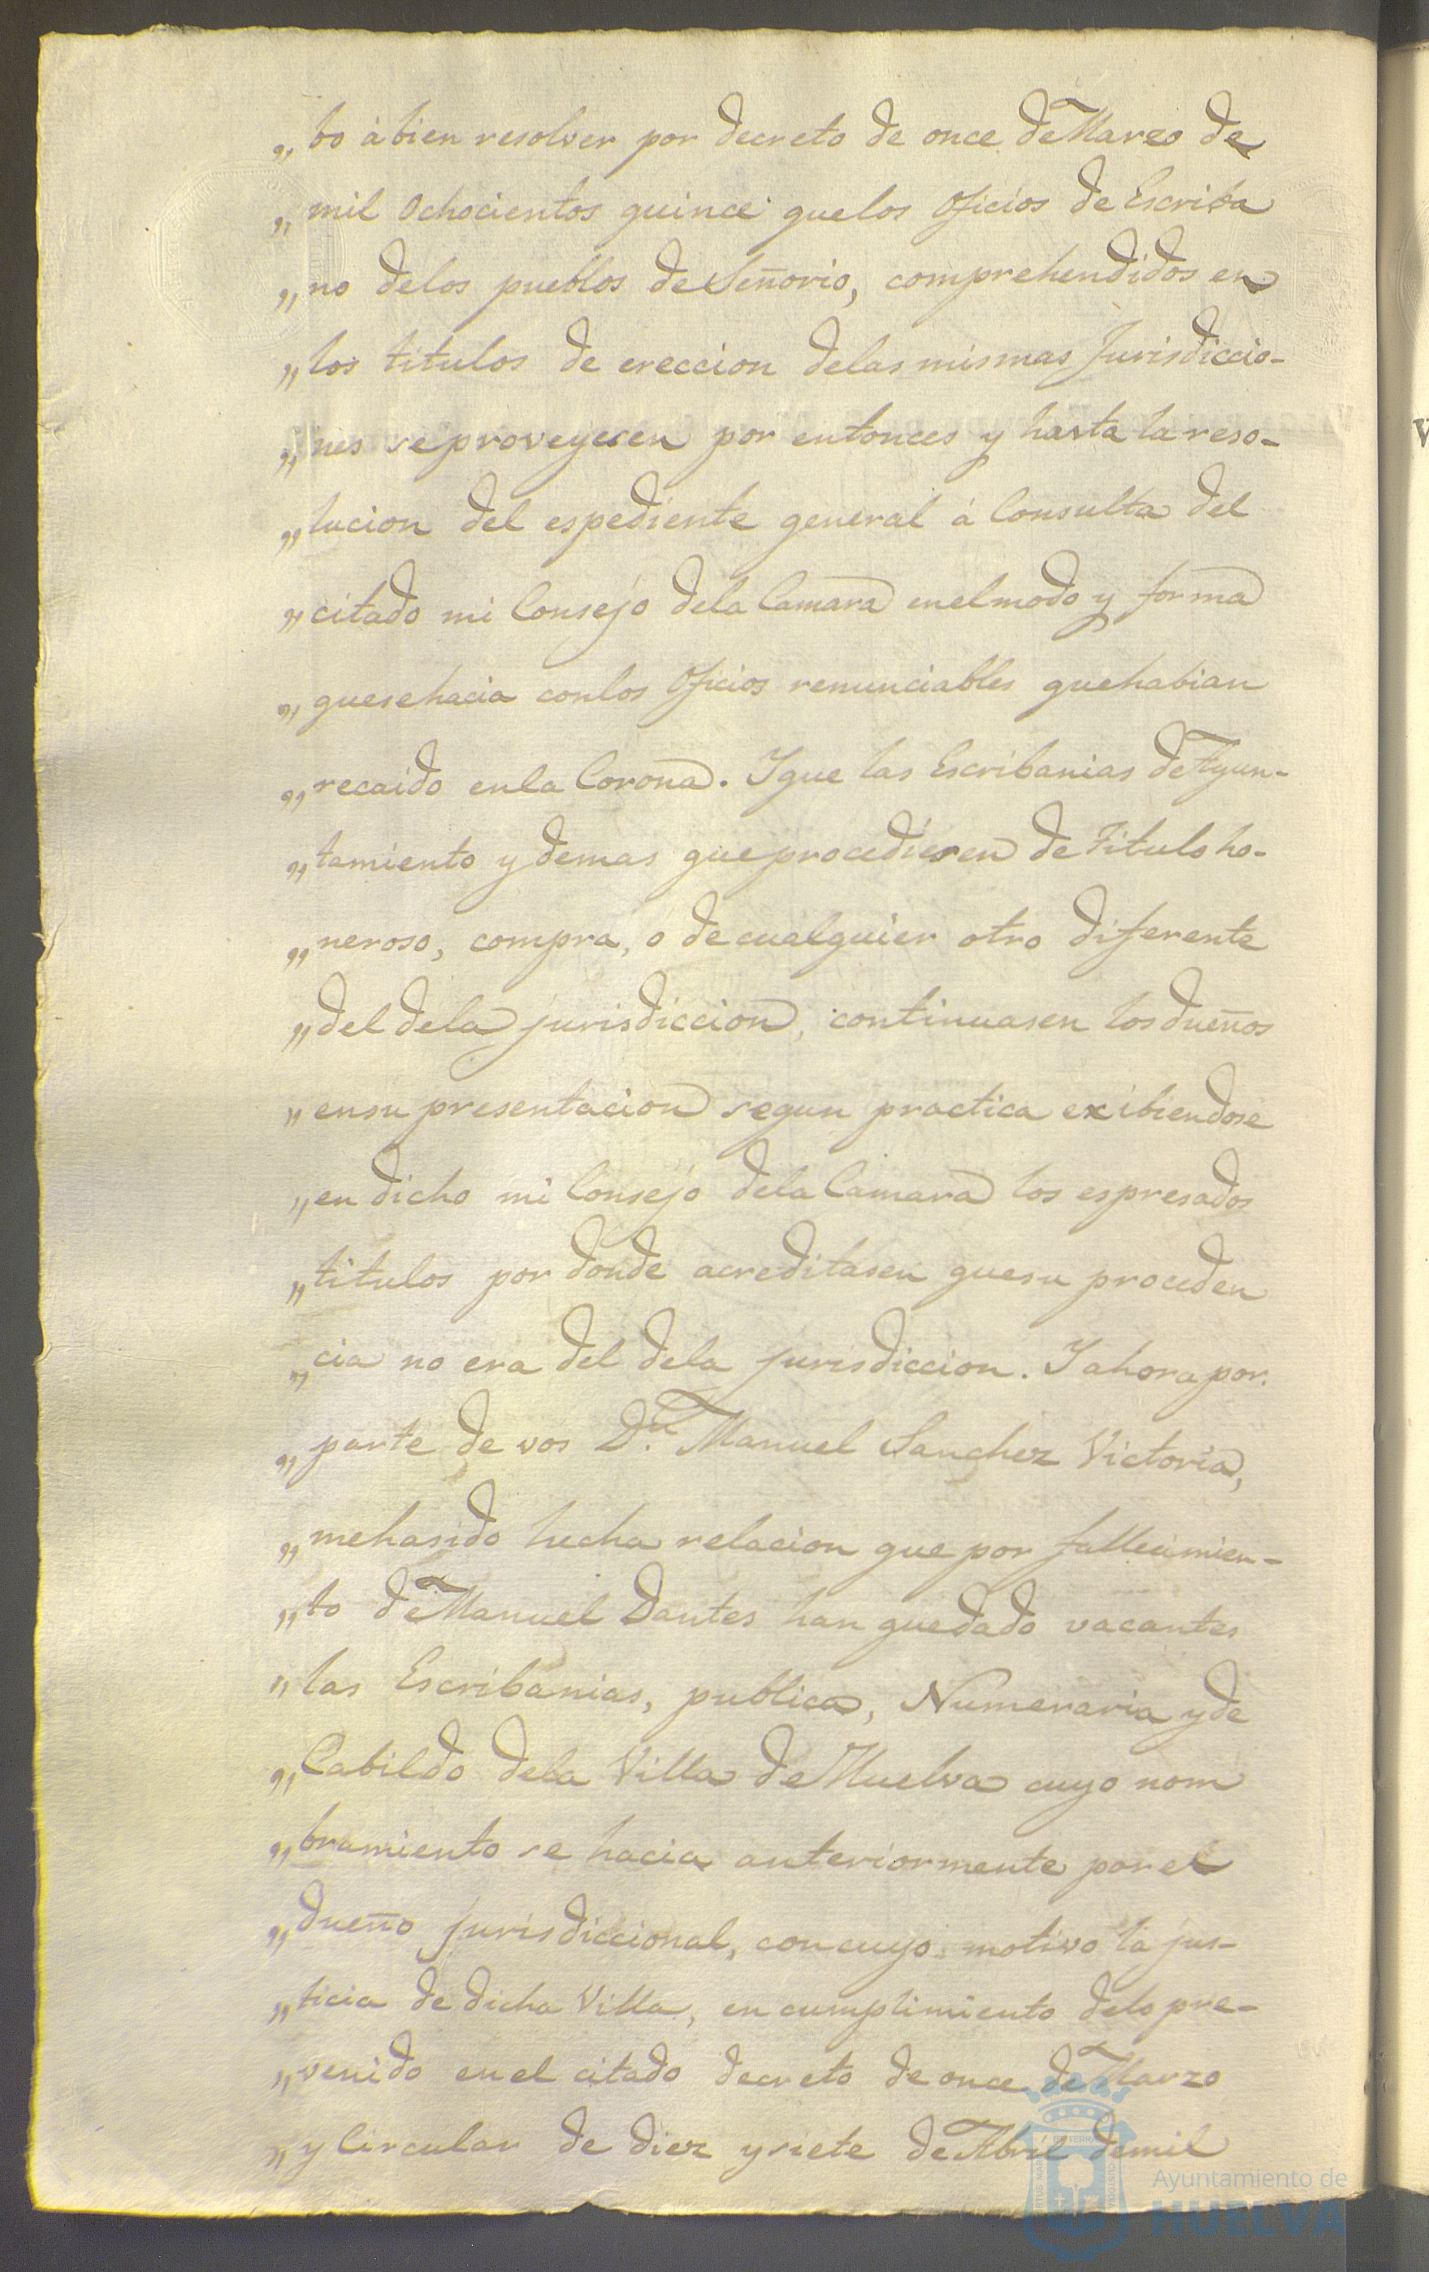 „ bo á bien resolver por decreto de once de Marzo de
„ mil ochocientos quince que los oficios de Escriba
„ no de los pueblos de Señorio, comprehendidos en
„ los titulos de ereccion de las mismas Jurisdiccio-
„ nes se proveyesen por entonces y hasta la reso-
„ lucion del espediente general á Consulta del
„ citado mi Consejo de la Camara en el modo y forma
„ que se hacia con los Oficios renunciables que habian
„ recaido en la Corona. Y que las Escribanias de Ayun-
„ tamiento y demas que procediesen de Titulo ho-
„ neroso, compra, o de cualquier otro diferente
„ del de la jurisdiccion, continuasen los dueños
„ en su presentacion segun practica exibiendose
„ en dicho mi Consejo de la Camara los espresados
„ titulos por donde acreditasen que su proceden
„ cia no era del de la jurisdiccion. Y ahora por
„ parte de vos D.n Manuel Sanchez Victoria,
„ me ha sido hecha relacion que por fallecimien-
„ to de Manuel Dantes han quedado vacantes
„ las Escribanias, publica, Numeraria y de
„ Cabildo de la Villa de Huelva cuyo nom
„ bramiento se hacia anteriormente por el
„ dueño jurisdiccional, con cuyo motivo la jus-
„ ticia de dicha Villa, en cumplimiento de lo pre-
„ venido en el citado decreto de once de Marzo
„ y Circular de diez y siete de Abril de mil
Ayuntamiento de
HUELVA